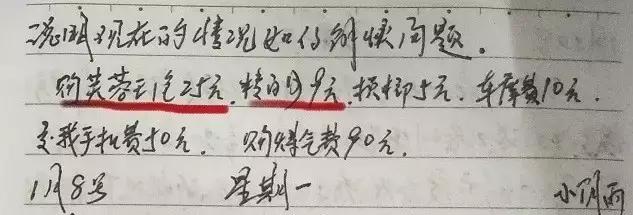 说明现在的情况如何解决问题。
购芙蓉王1包25元.精白沙9元.槟榔5元.车库费10元.
交我手机费50元.购煤气费90元.
1月8号 星期一 小阴雨